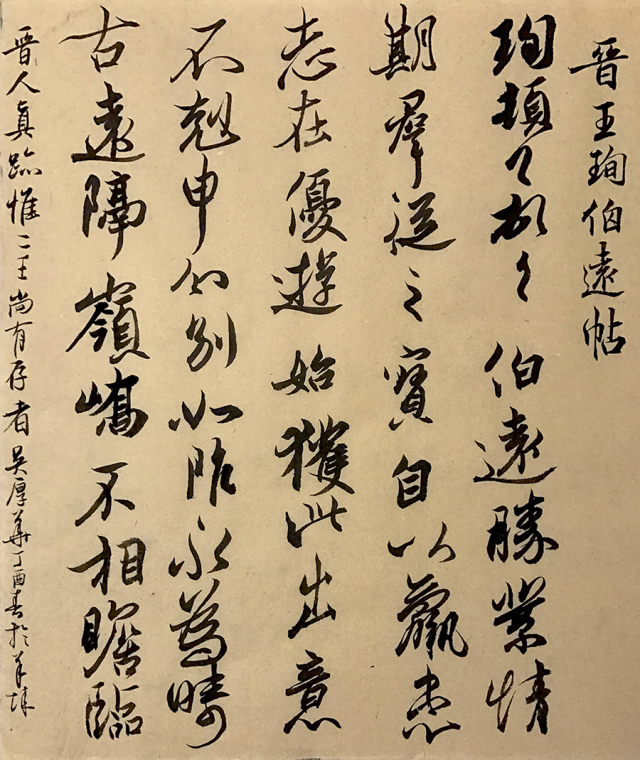 晉王珣伯遠帖
珣頓々首々伯遠勝業情
期羣從之寶自以羸患
志在優遊始獲此出意
不剋申分別如昨永為疇
古遠隔嶺嶠不相瞻臨
晉人眞跡惟二王尚有存者吳厚華丁酉春於羊城